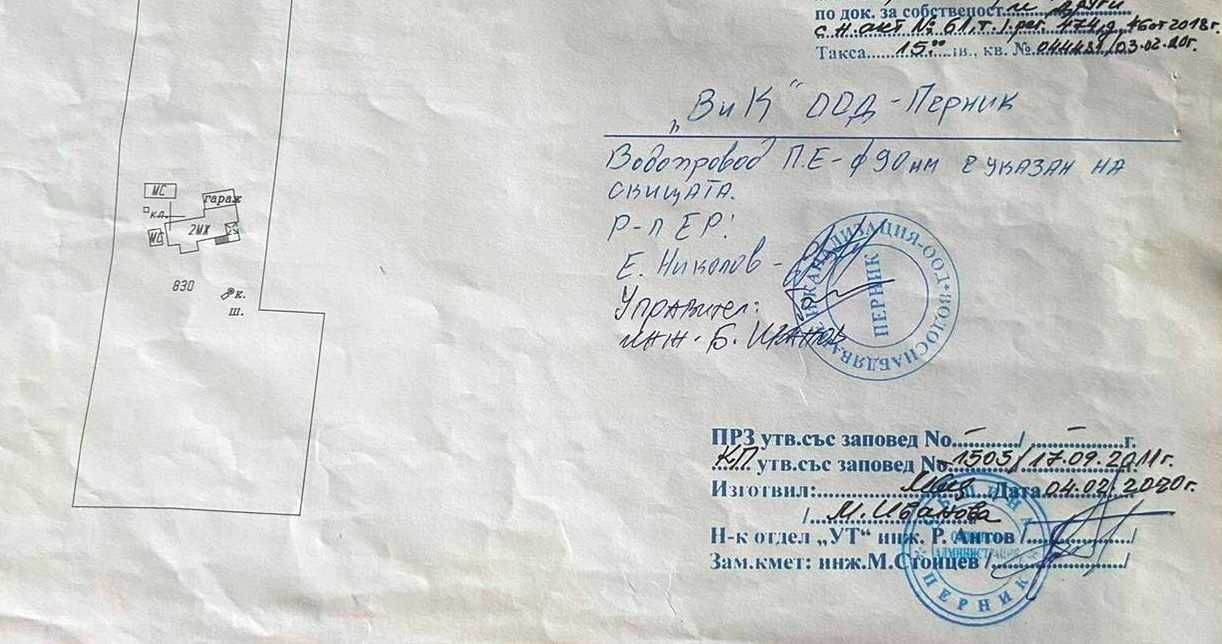 по док. за собственост
с н. акт № 61, т. I, рег. 474, д. 46 от 2018г.
Такса 15.00 лв., кв. № 044481/03.02.20г.
„ВиК" ООД - Перник
Водопровод П.Е - ф 90 мм е указан на
скицата.
Р-л ЕР:
Е. Николов -
Управител:
инж. Б. Иванов
КАНАЛИЗАЦИЯ-ООД * ВОДОСНАБДЯВАНЕ И
ПЕРНИК
МС
гараж
кл.
2МЖ
МС
830
к.
ш.
ПРЗ утв.със заповед No...-.../...-...г.
КП утв.със заповед No 1503/17.09.2011г.
Изготвил: Дата 04.02.2020г.
/ М. Иванова
Н-к отдел „УТ“ инж. Р. Антов /............/
Зам.кмет: инж.М.Стоицев /............/
ОБЩИНА
АДМИНИСТРАЦИЯ
ПЕРНИК